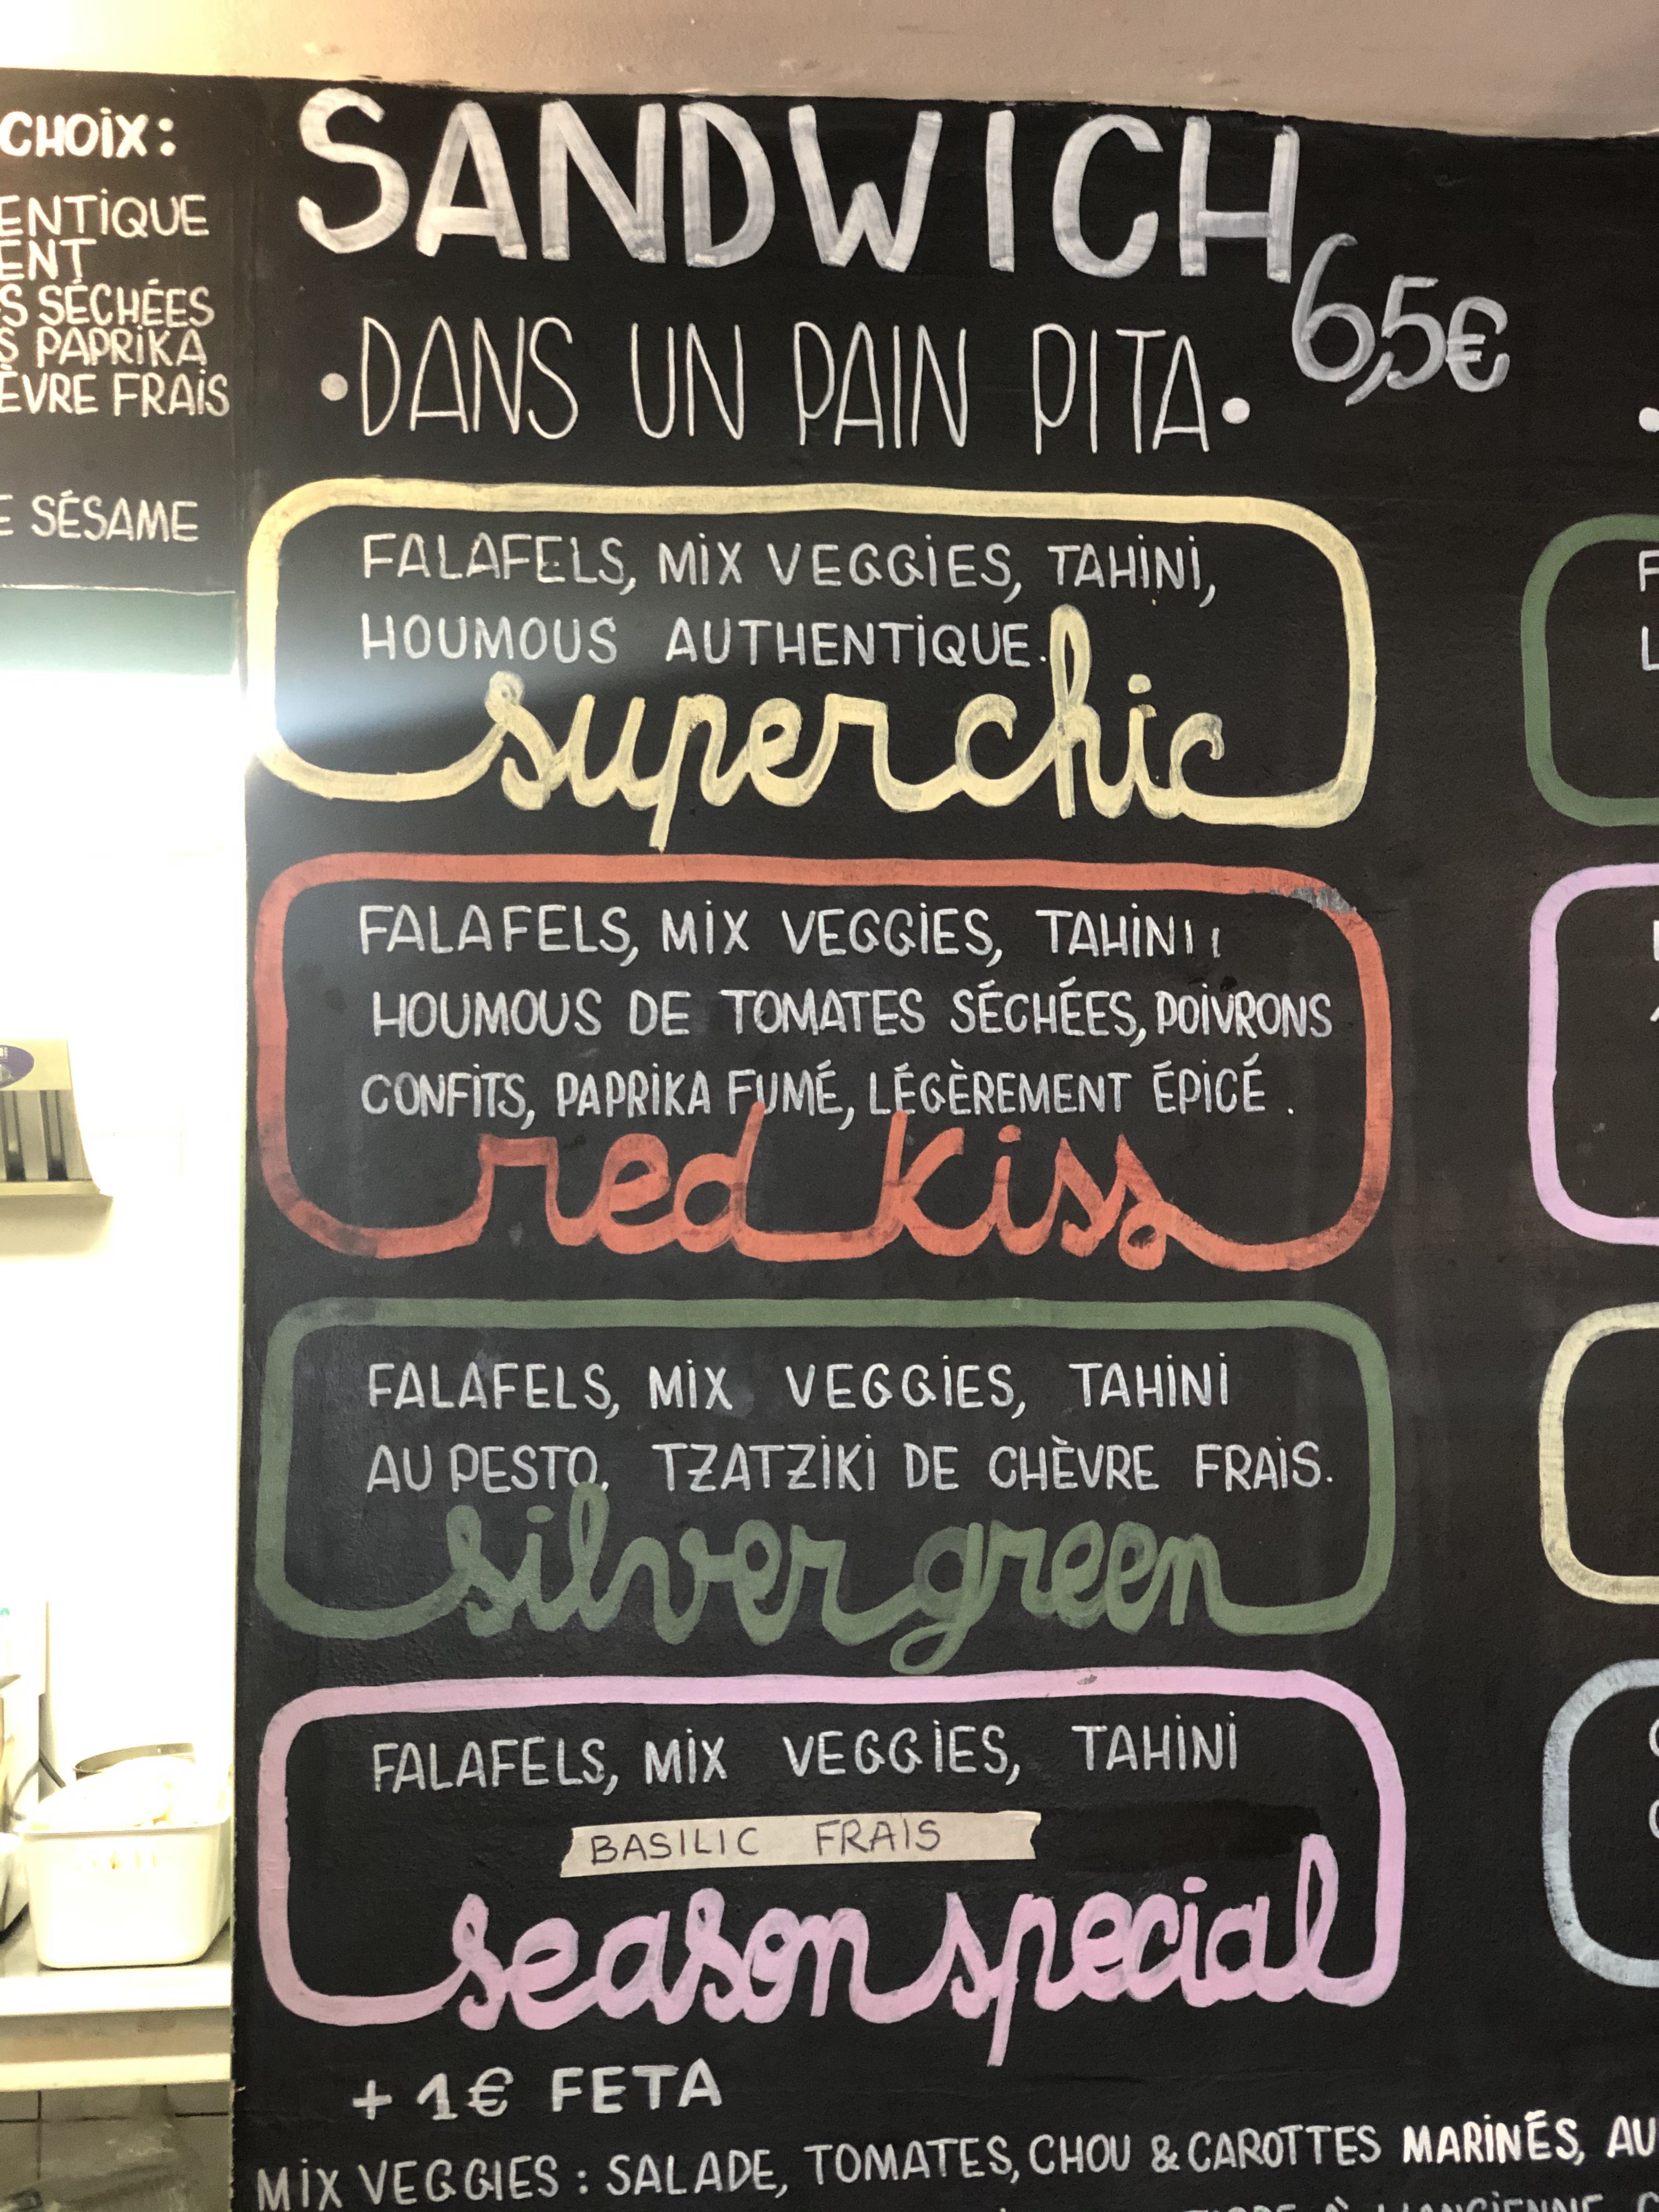 CHOIX:
PAPRIKA
FRAIS
SÉSAME
SANDWICH
6,5€
•DANS UN PAIN PITA•
FALAFELS, MIX VEGGIES, TAHINI,
HOUMOUS AUTHENTIQUE.
super chic
FALAFELS, MIX VEGGIES, TAHINI,
HOUMOUS DE TOMATES SÉCHÉES, POIVRONS
CONFITS, PAPRIKA FUMÉ, LÉGÈREMENT ÉPICÉ.
red kiss
FALAFELS, MIX VEGGIES, TAHINI
AU PESTO, TZATZIKI DE CHÈVRE FRAIS.
silver green
FALAFELS, MIX VEGGIES, TAHINI
BASILIC FRAIS
season special
+ 1€ FETA
MIX VEGGIES : SALADE, TOMATES, CHOU & CAROTTES MARINÉS,